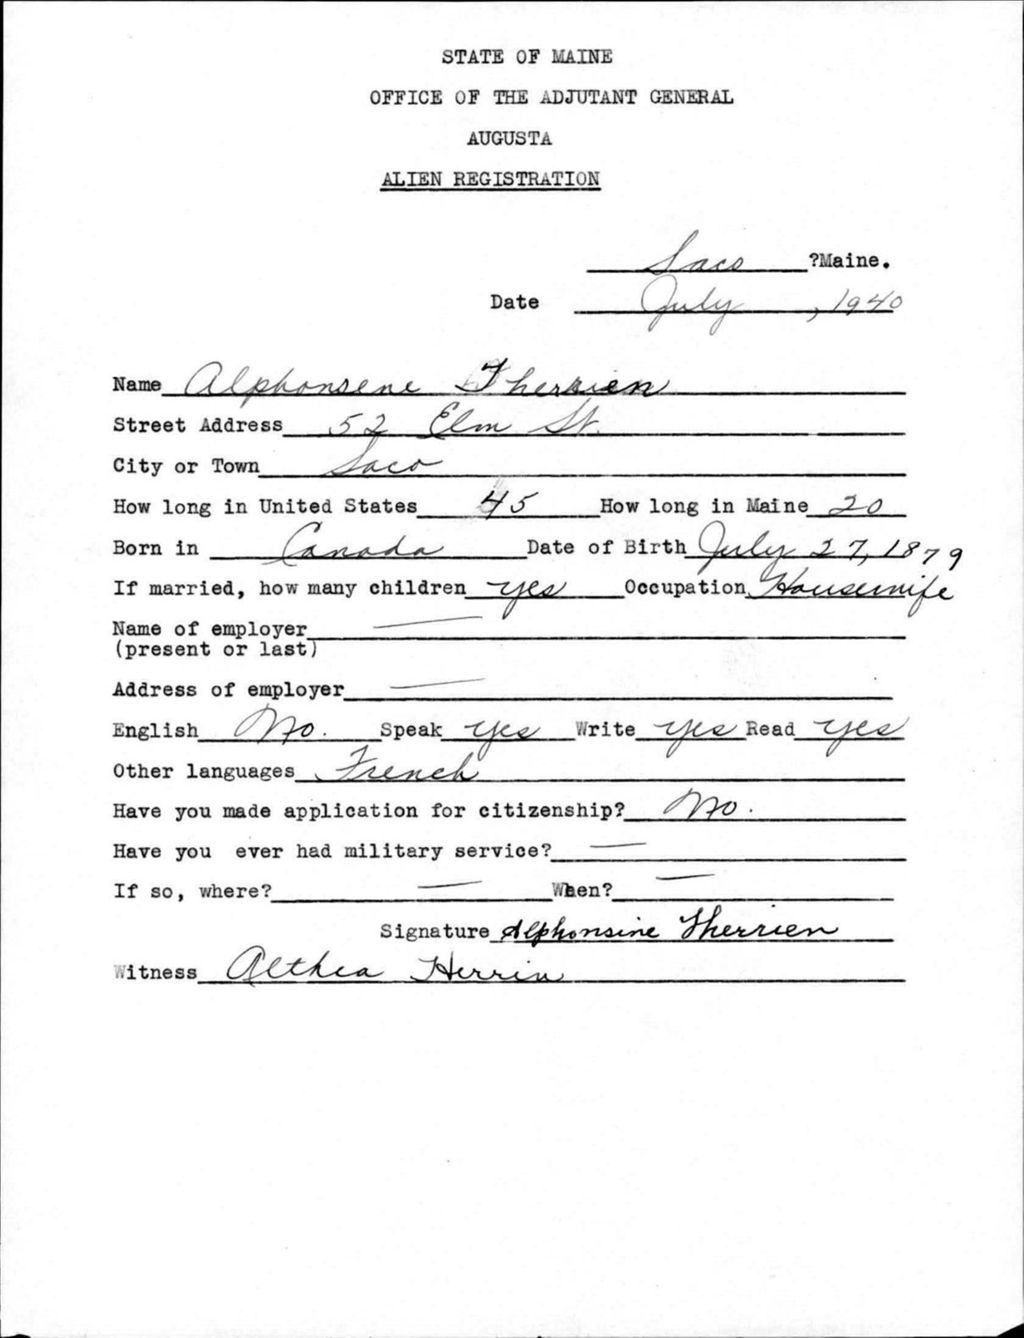 STATE OF MAINE
OFFICE OF THE ADJUTANT GENERAL
AUGUSTA
ALIEN REGISTRATION
Saco ?Maine.
Date July , 1940
Name Alphonsene Therrien
Street Address 52 Elm St.
City or Town Saco
How long in United States 45 How long in Maine 20
Born in Canada Date of Birth July 27, 1879
If married, how many children yes Occupation Housewife
Name of employer —
(present or last)
Address of employer —
English No. Speak yes Write yes Read yes
Other languages French
Have you made application for citizenship? No.
Have you ever had military service? —
If so, where? — When? —
Signature Alphonsine Therrien
Witness Althea Herrin